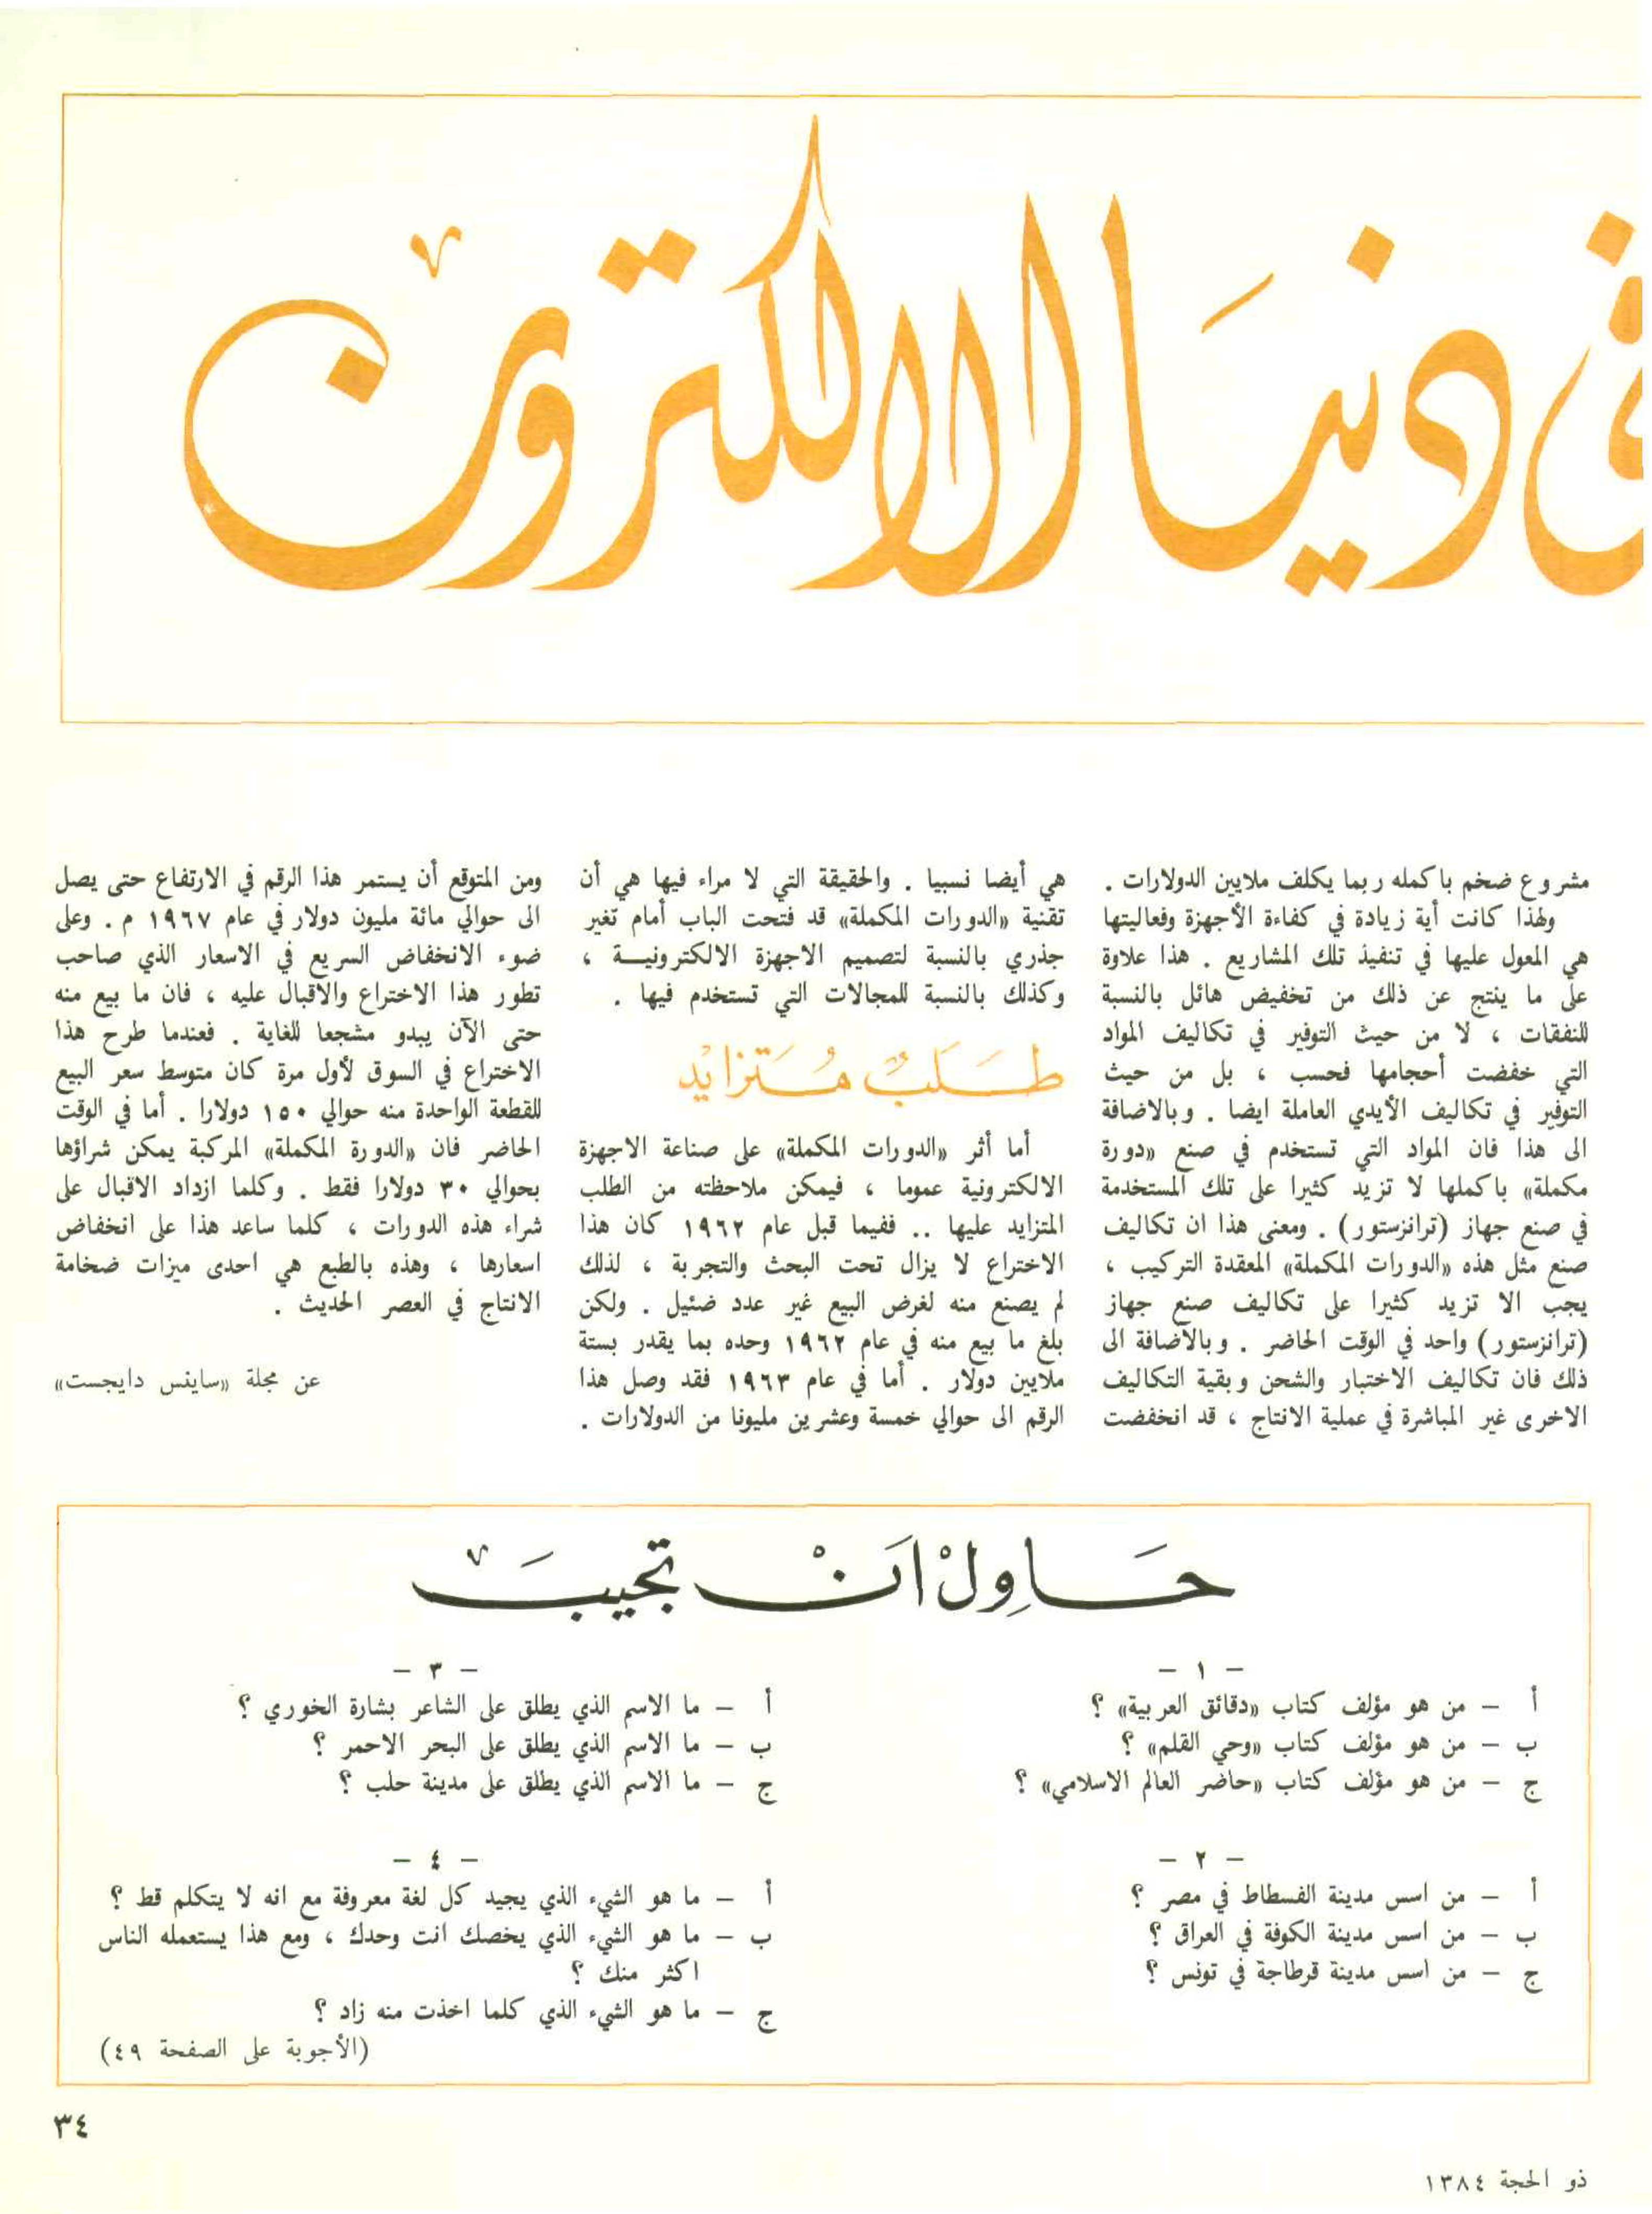 في دنيا الالكترون
مشروع ضخم باكمله ربما يكلف ملايين الدولارات .
ولهذا كانت أية زيادة في كفاءة الأجهزة وفعاليتها
هي المعول عليها في تنفيذ تلك المشاريع . هذا علاوة
على ما ينتج عن ذلك من تخفيض هائل بالنسبة
للنفقات ، لا من حيث التوفير في تكاليف المواد
التي خفضت أحجامها فحسب ، بل من حيث
التوفير في تكاليف الأيدي العاملة ايضا . وبالاضافة
الى هذا فان المواد التي تستخدم في صنع «دورة
مكملة» باكملها لا تزيد كثيرا على تلك المستخدمة
في صنع جهاز (ترانزستور) . ومعنى هذا ان تكاليف
صنع مثل هذه «الدورات المكملة» المعقدة التركيب ،
يجب الا تزيد كثيرا على تكاليف صنع جهاز
(ترانزستور) واحد في الوقت الحاضر . وبالأضافة الى
ذلك فان تكاليف الاختبار والشحن وبقية التكاليف
الاخرى غير المباشرة في عملية الانتاج ، قد انخفضت
هي أيضا نسبيا . والحقيقة التي لا مراء فيها هي أن
تقنية «الدورات المكملة» قد فتحت الباب أمام تغير
جذري بالنسبة لتصميم الاجهزة الالكترونيـــة ،
وكذلك بالنسبة للمجالات التي تستخدم فيها .
طَلَبٌ مُتَزايْد
أما أثر «الدورات المكملة» على صناعة الاجهزة
الالكترونية عموما ، فيمكن ملاحظته من الطلب
المتزايد عليها .. ففيما قبل عام ١٩٦٢ كان هذا
الاختراع لا يزال تحت البحث والتجربة ، لذلك
لم يصنع منه لغرض البيع غير عدد ضئيل . ولكن
بلغ ما بيع منه في عام ١٩٦٢ وحده بما يقدر بستة
ملايين دولار . أما في عام ١٩٦٣ فقد وصل هذا
الرقم الى حوالي خمسة وعشرين مليونا من الدولارات .
ومن المتوقع أن يستمر هذا الرقم في الارتفاع حتى يصل
الى حوالي مائة مليون دولار في عام ١٩٦٧ م . وعلى
ضوء الانخفاض السريع في الاسعار الذي صاحب
تطور هذا الاختراع والاقبال عليه ، فان ما بيع منه
حتى الآن يبدو مشجعا للغاية . فعندما طرح هذا
الاختراع في السوق لأول مرة كان متوسط سعر البيع
للقطعة الواحدة منه حوالي ١٥٠ دولارا . أما في الوقت
الحاضر فان «الدورة المكملة» المركبة يمكن شراؤها
بحوالي ٣٠ دولارا فقط . وكلما ازداد الاقبال على
شراء هذه الدورات ، كلما ساعد هذا على انخفاض
اسعارها ، وهذه بالطبع هي احدى ميزات ضخامة
الانتاج في العصر الحديث .
عن مجلة «ساينس دايجست»
حَاوِلْ اَنْ تجيبَ
– ١ –
أ – من هو مؤلف كتاب «دقائق العربية» ؟
ب – من هو مؤلف كتاب «وحي القلم» ؟
ج – من هو مؤلف كتاب «حاضر العالم الاسلامي» ؟
– ٢ –
أ – من اسس مدينة الفسطاط في مصر ؟
ب – من اسس مدينة الكوفة في العراق ؟
ج – من اسس مدينة قرطاجة في تونس ؟
– ٣ –
أ – ما الاسم الذي يطلق على الشاعر بشارة الخوري ؟
ب – ما الاسم الذي يطلق على البحر الاحمر ؟
ج – ما الاسم الذي يطلق على مدينة حلب ؟
– ٤ –
أ – ما هو الشيء الذي يجيد كل لغة معروفة مع انه لا يتكلم قط ؟
ب – ما هو الشيء الذي يخصك انت وحدك ، ومع هذا يستعمله الناس
اكثر منك ؟
ج – ما هو الشيء الذي كلما اخذت منه زاد ؟
(الأجوبة على الصفحة ٤٩)
٣٤
ذو الحجة ١٣٨٤